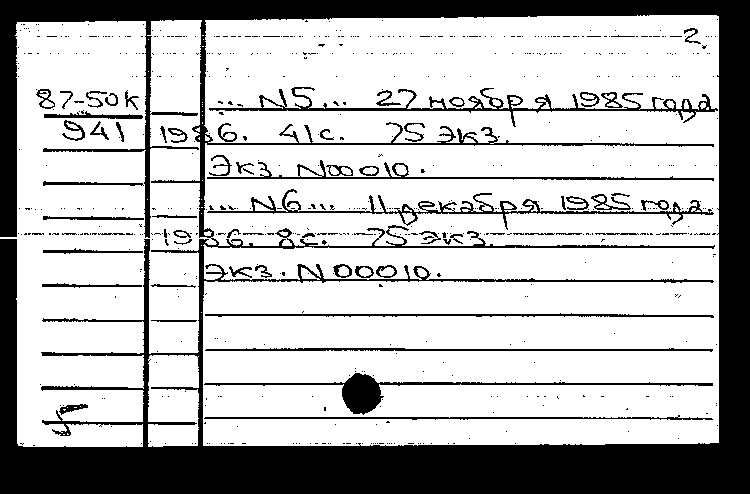 2.
87-50к ... N5... 27 ноября 1985 года
941 1986. 41с. 75 экз.
Экз. N00010.
... N6... 11 декабря 1985 года
1986. 8с. 75 экз.
Экз. N00010.